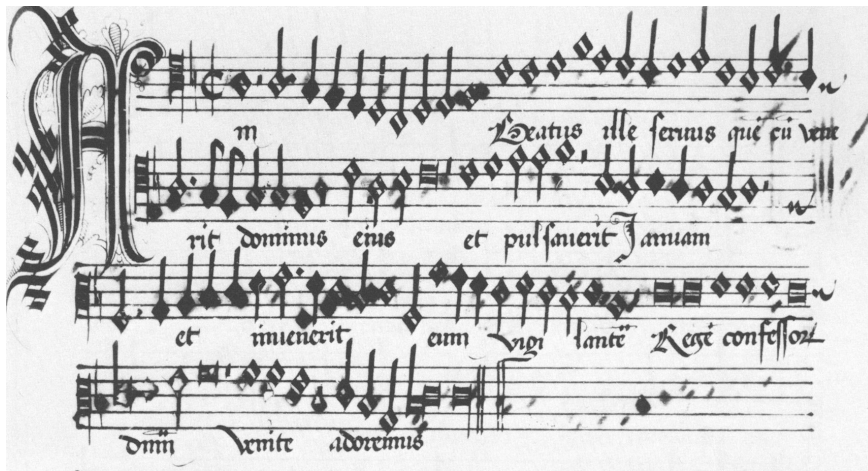 Am Beatus ille seruus quē cū vene
rit dominus eius et pulsauerit Januam
et inuenerit eum vigi lantē Regē confessoꝝ
dnū venite adoremus